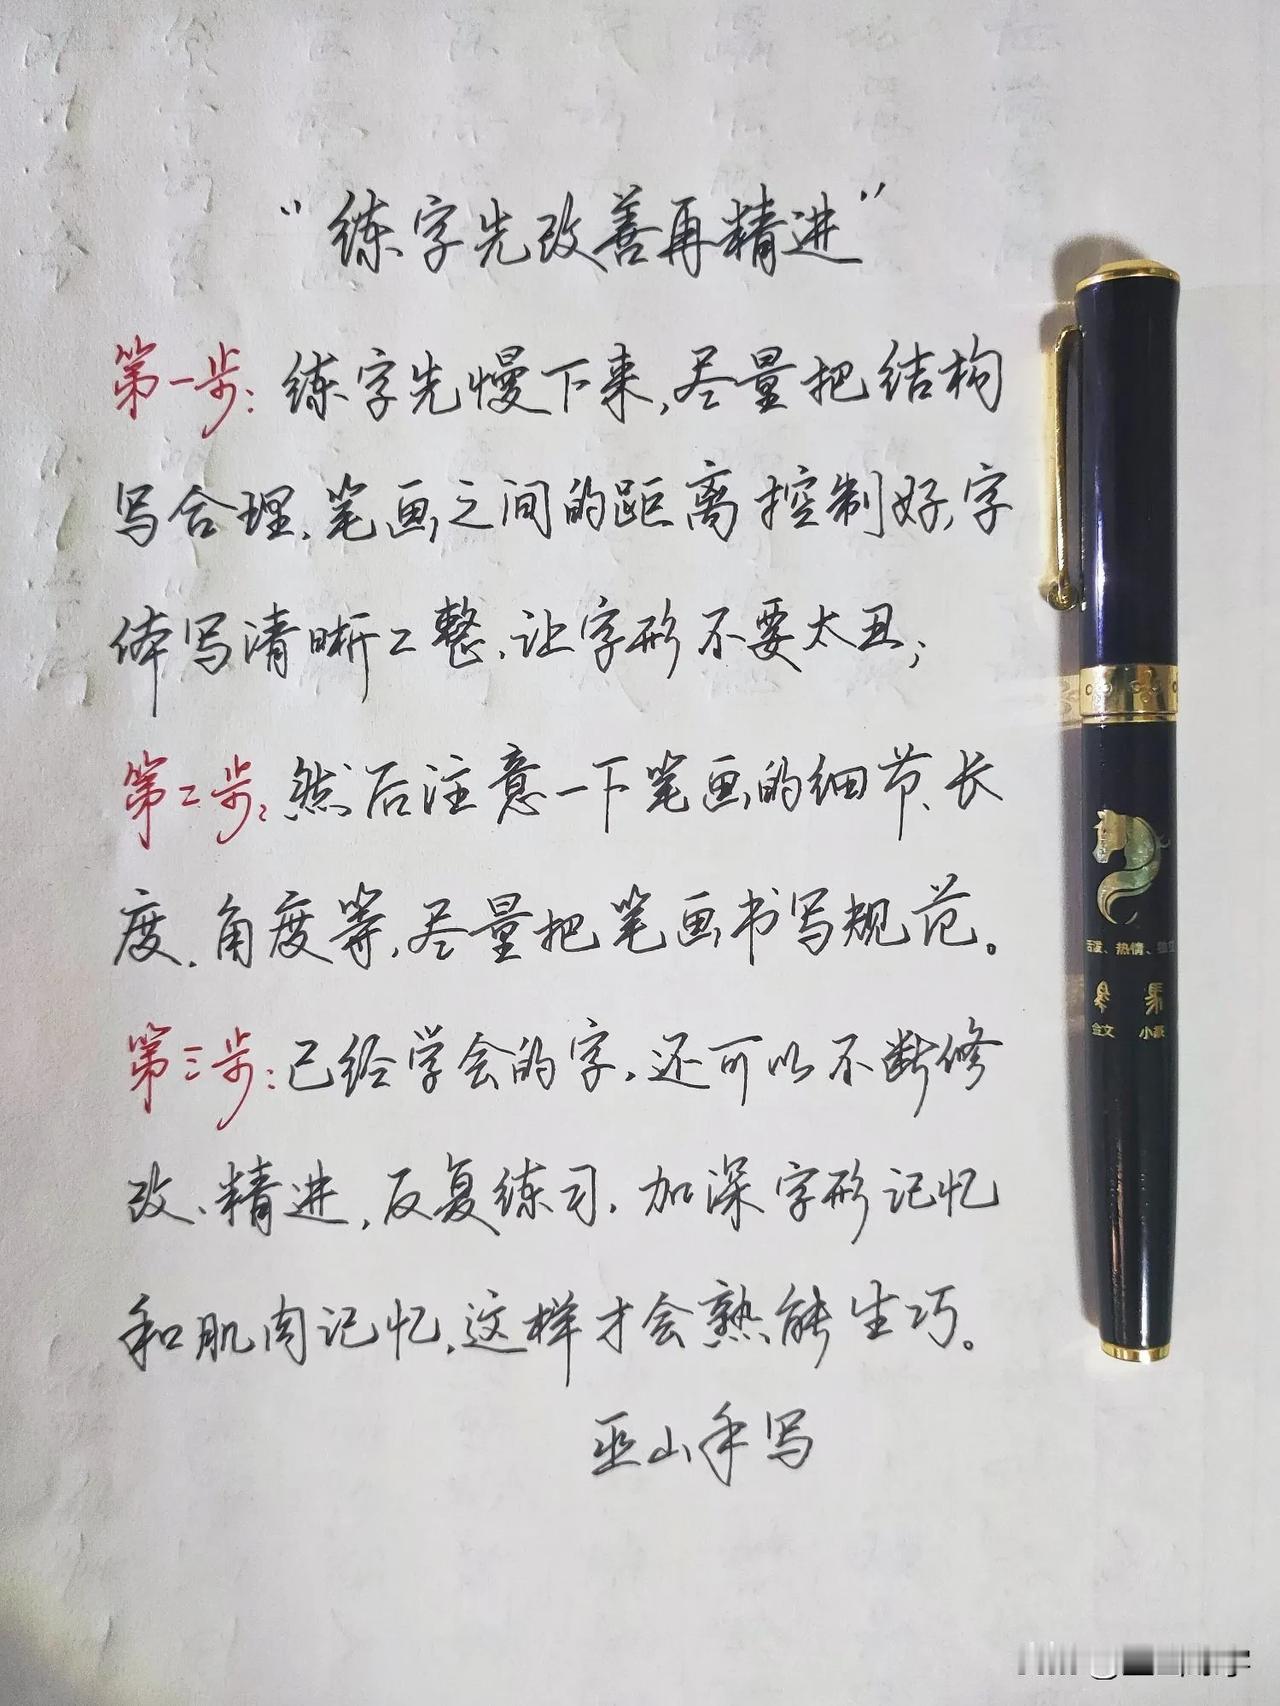 “练字先改善再精进”
第一步:练字先慢下来,尽量把结构
写合理、笔画之间的距离控制好,字
体写清晰工整,让字形不要太丑;
第二步:然后注意一下笔画的细节、长
度、角度等,尽量把笔画书写规范。
第三步:已经学会的字,还可以不断修
改、精进,反复练习,加深字形记忆
和肌肉记忆,这样才会熟能生巧。
巫山手写
活泼、热情、独立
金文 小篆